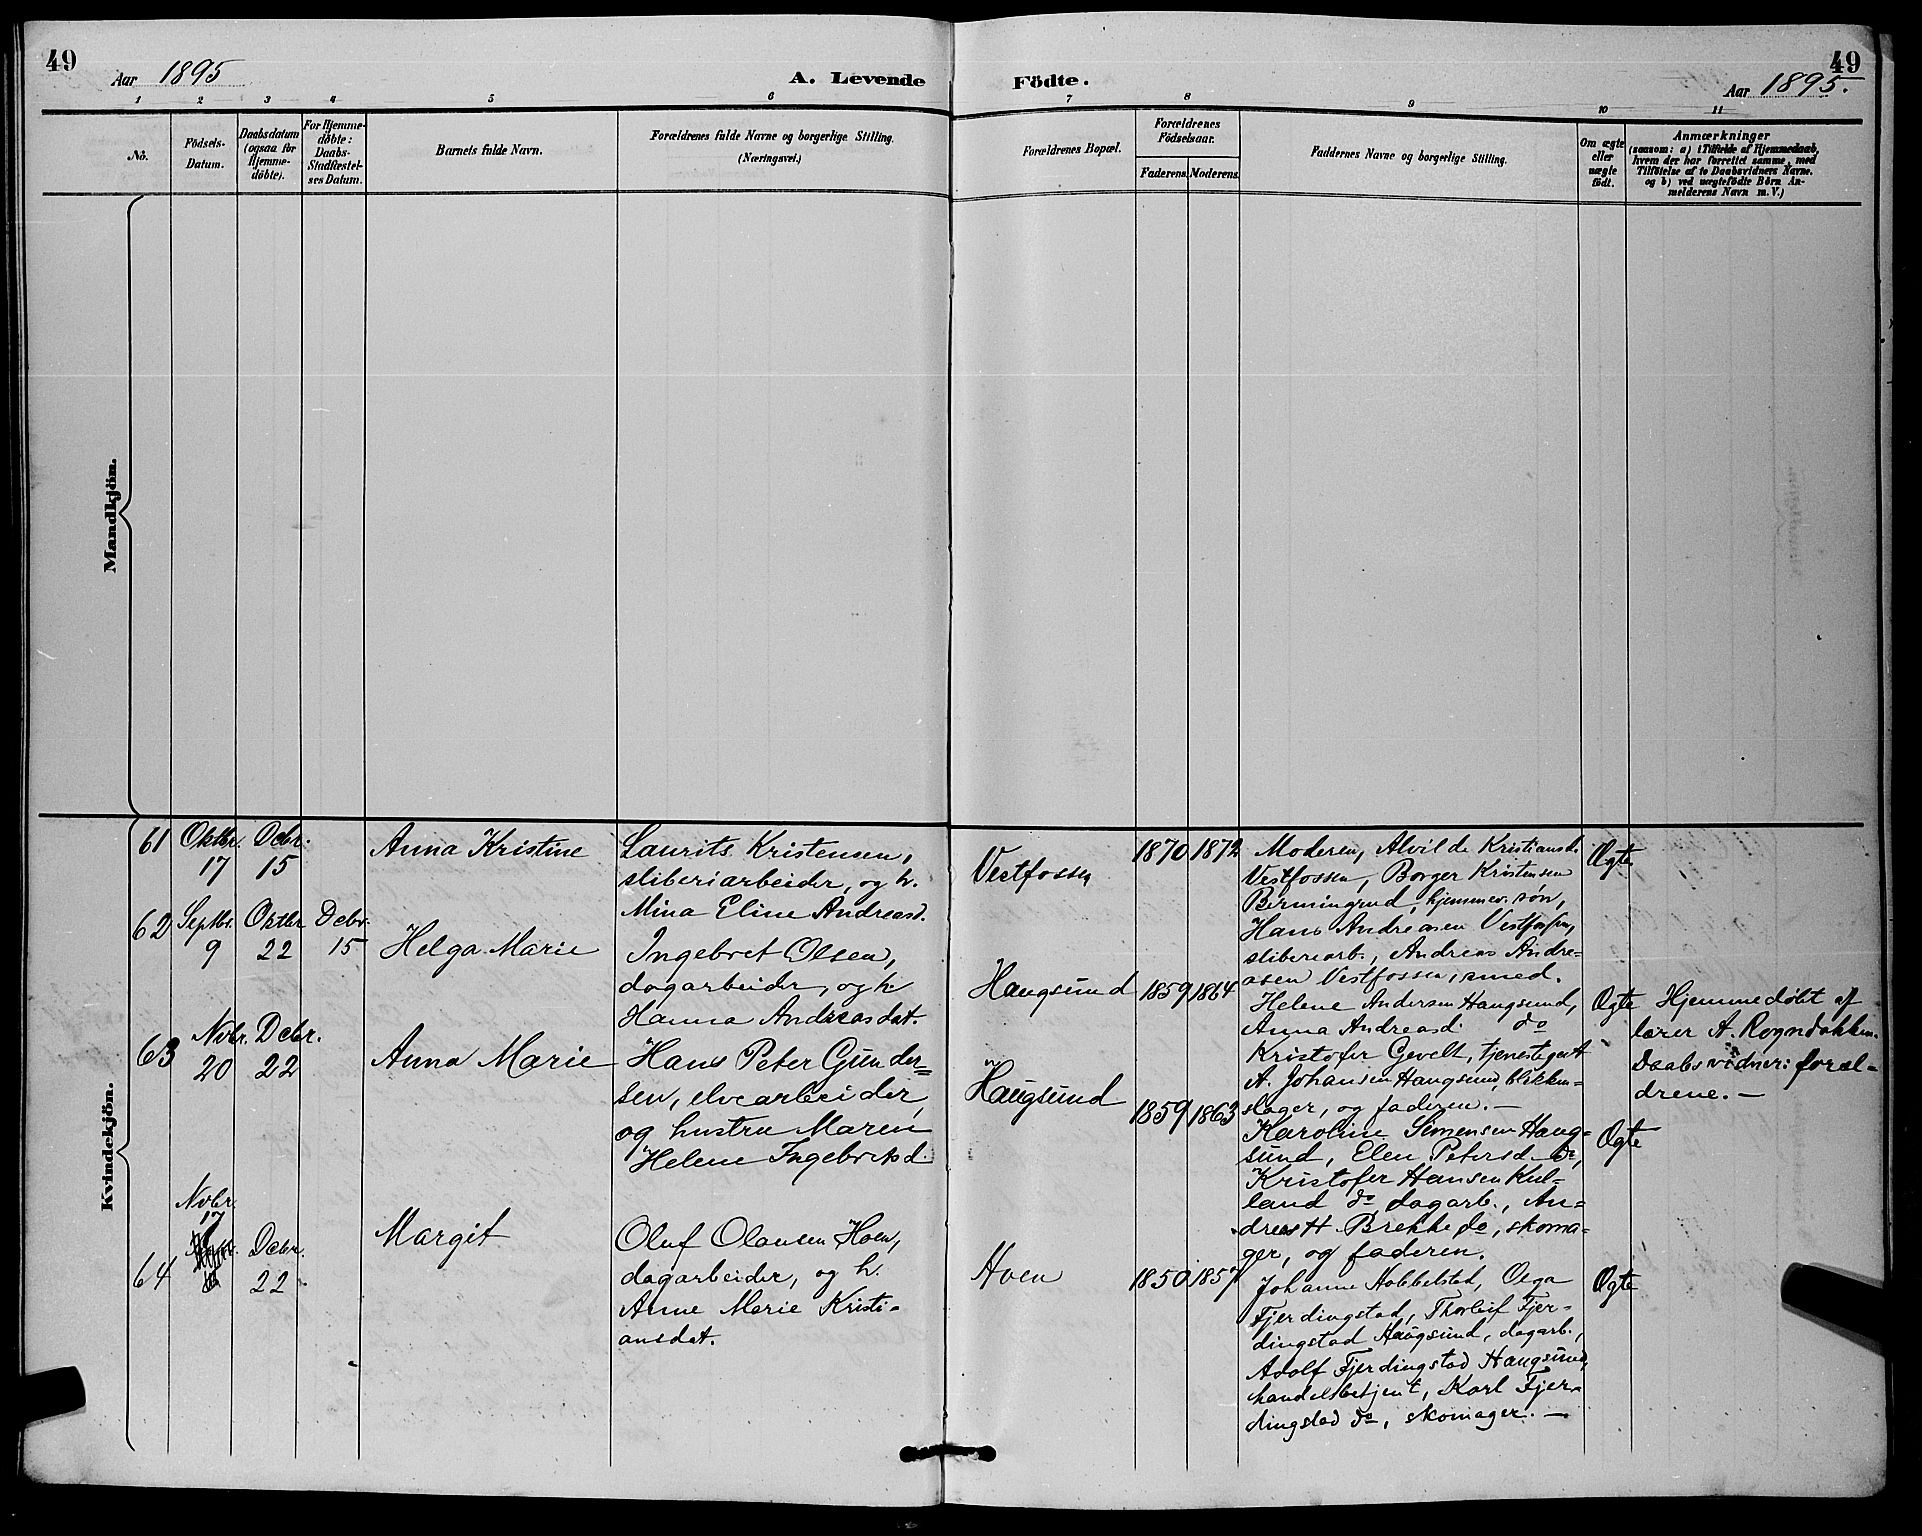 49
Aar 1895
A. Levende Födte.
49
Aar 1895.
1 2 3 4 5 6 7 8 9 10 11
No.
Födsels-
Datum.
Daabsdatum
(ogsaa for
Hjemme-
döbte).
For Hjemme-
döbte:
Daabs-
Stadfæstel-
ses Datum.
Barnets fulde Navn.
Forældrenes fulde Navne og borgerlige Stilling.
(Næringsvei.)
Forældrenes Bopæl.
Forældrenes
Födselsaar.
Faderens. Moderens.
Faddernes Navne og borgerlige Stilling.
Om ægte
eller
uægte
födt.
Anmærkninger
(saasom: a) i Tilfælde af Hjemmedaab,
hvem der har forrettet samme, med
Tilföielse af to Daabsvidners Navne.
og b) ved uægtefödte Börn An-
melderens Navn m. V.)
Mandkjön.
Kvindekjön.
61
Oktbr.
17
Debr.
15
Anna Kristine
Laurits Kristensen,
sliberiarbeider, og h.
Mina Eline Andreasd.
Vestfossen
1870
1872
Moderen, Alvilde Kristiansd.
Vestfossen, Borger Kristensen
Bermingrud, hjemmev. søn,
Hans Andreasen Vestfossen,
sliberiarb., Andreas Andre-
asen Vestfossen, smed.
Ægte
62
Septbr.
9
Oktbr
22
Debr.
15
Helga Marie
Ingebret Olsen,
dagarbeider, og h.
Hanna Andreasdat.
Haugsund
1859
1864
Helene Andersen Haugsund,
Anna Andreasd. do
Kristofer Gevelt, tjenestegut
A. Johansen Haugsund, blikken-
slager, og faderen. —
Ægte
Hjemmedøbt af
lærer A. Rogndokken.
Daabsvidner: foræl-
drene. —
63
Nvbr.
20
Debr.
22
Anna Marie
Hans Peter Gunder=
sen, elvearbeider,
og hustru Maren
Helene Ingebretsd.
Haugsund
1859
1863
Karoline Simensen Haug-
sund, Elen Petersd. do,
Kristofer Hansen Kul-
land do, dagarb., An-
dreas H. Brekke do, skoma-
ger, og faderen.
Ægte
64
Nvbr.
17
Debr.
22
Margit
Oluf Olausen Hoen,
dagarbeider, og h.
Anne Marie Kristi-
ansdat.
Hoen
1850
1857
Johanne Hobbelstad, Olga
Fjerdingstad, Thorleif Fjer-
dingstad Haugsund, dagarb.,
Adolf Fjerdingstad Haugsund,
handelsbetjent, Karl Fjer-
dingstad do, skomager. —
Ægte